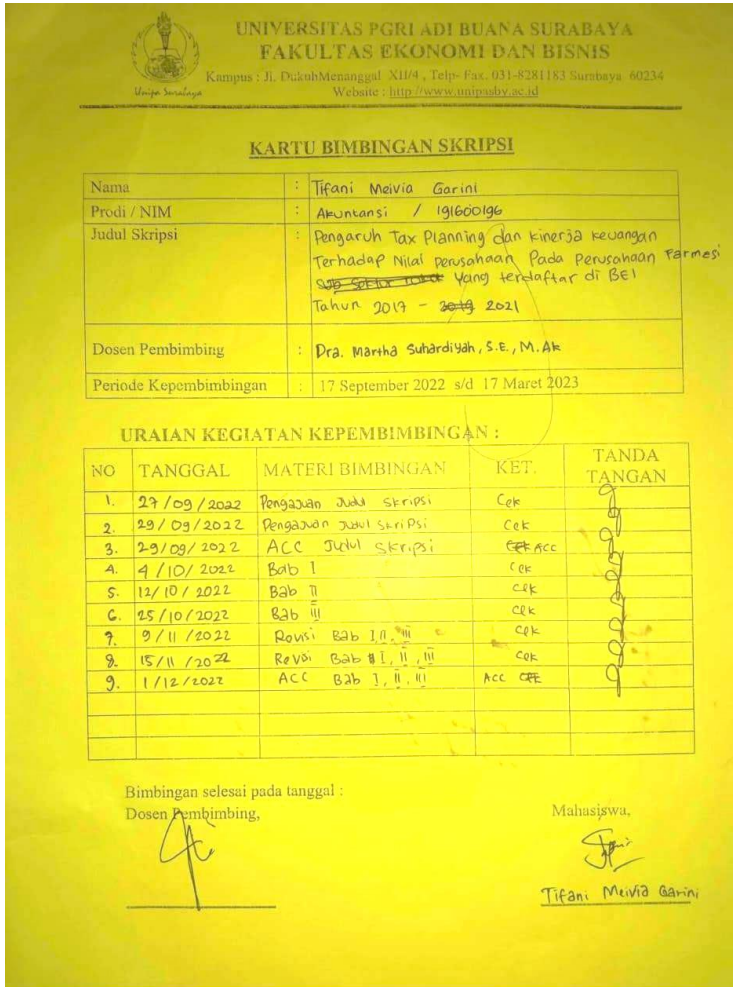 UNIVERSITAS PGRI ADI BUANA SURABAYA
FAKULTAS EKONOMI DAN BISNIS
Kampus : Jl. DukuhMenanggal XII/4 , Telp- Fax. 031-8281183 Surabaya 60234
Website : http://www.unipasby.ac.id
Unipa Surabaya
KARTU BIMBINGAN SKRIPSI
Nama : Tifani Meivia Garini
Prodi / NIM : Akuntansi / 191600196
Judul Skripsi : Pengaruh Tax Planning dan kinerja keuangan
Terhadap Nilai perusahaan Pada Perusahaan Farmesi
Sub Sektor Yang terdaftar di BEI
Tahun 2017 - 2019 2021
Dosen Pembimbing : Dra. Martha Suhardiyah, S.E., M.Ak
Periode Kepembimbingan : 17 September 2022 s/d 17 Maret 2023
URAIAN KEGIATAN KEPEMBIMBINGAN :
NO TANGGAL MATERI BIMBINGAN KET. TANDA TANGAN
1. 27/09/2022 Pengajuan Judul Skripsi Cek
2. 29/09/2022 Pengajuan Judul Skripsi Cek
3. 29/09/2022 ACC Judul Skripsi CEK ACC
4. 4/10/2022 Bab I Cek
5. 12/10/2022 Bab II Cek
6. 25/10/2022 Bab III Cek
7. 9/11/2022 Revisi Bab I, II, III Cek
8. 15/11/2022 Revisi Bab I, II, III Cek
9. 1/12/2022 ACC Bab I, II, III ACC CEK
Bimbingan selesai pada tanggal :
Dosen Pembimbing, Mahasiswa,
Tifani Meivia Garini